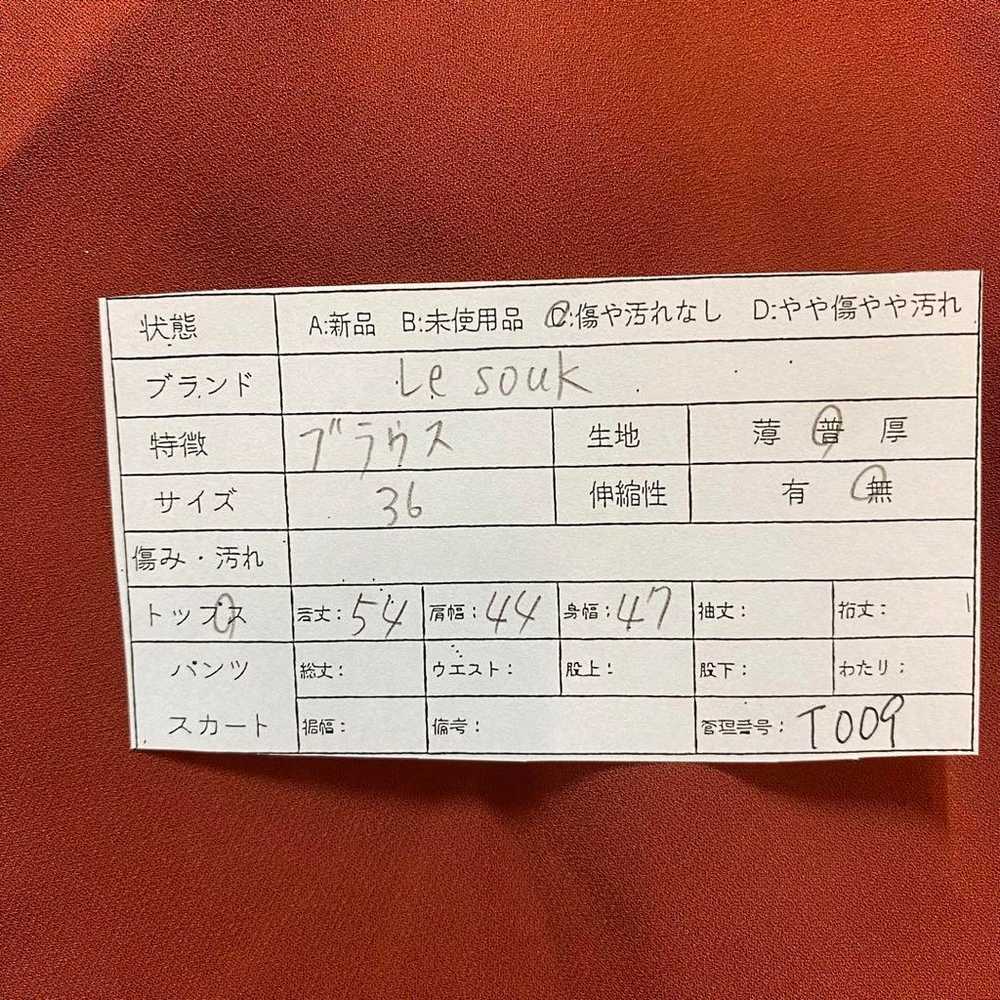 状態 A:新品 B:未使用品 C:傷や汚れなし D:やや傷やや汚れ
ブランド Le souk
特徴 ブラウス 生地 薄 普 厚
サイズ 36 伸縮性 有 無
傷み・汚れ
トップス 着丈:54 肩幅:44 身幅:47 袖丈: 裄丈:
パンツ 総丈: ウエスト: 股上: 股下: わたり:
スカート 裾幅: 備考: 管理番号:T009